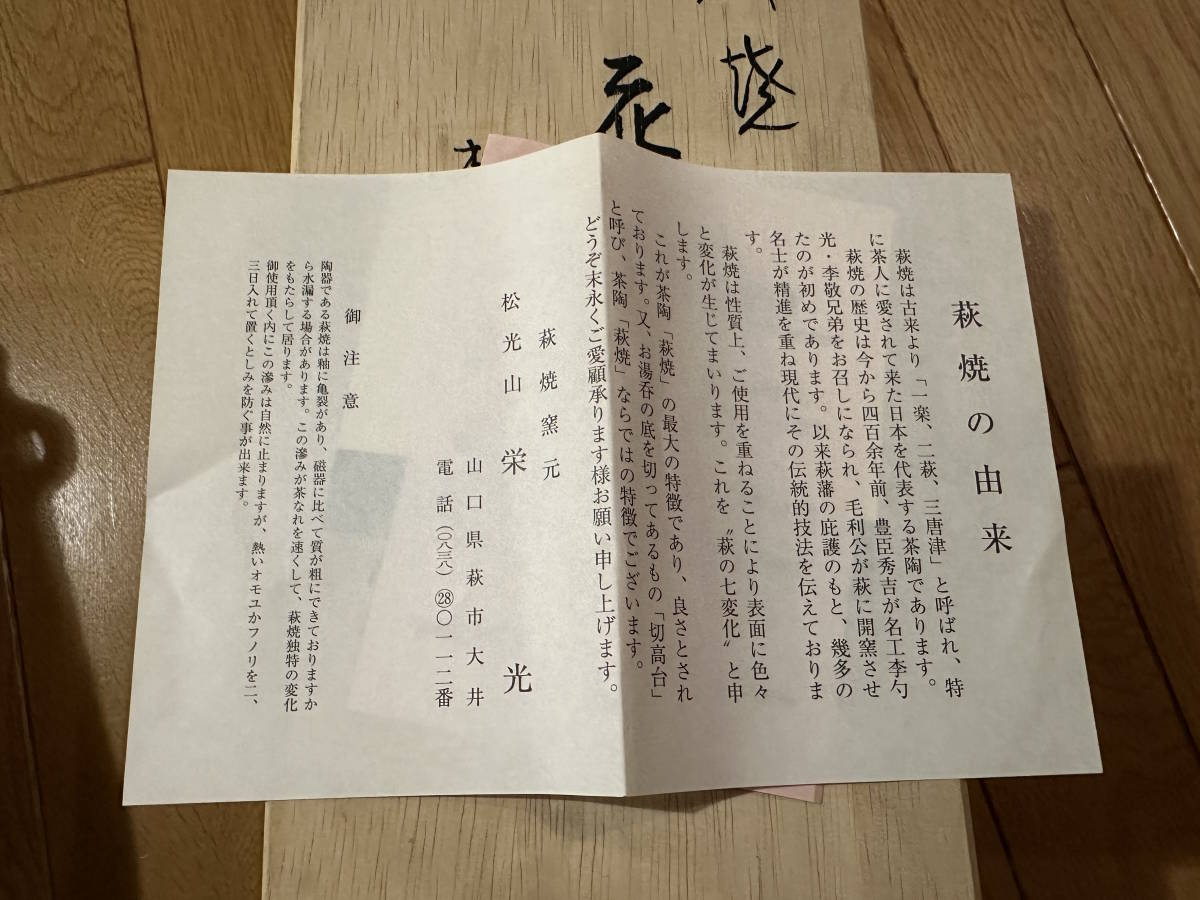 焼
花
萩焼の由来
萩焼は古来より「一楽、二萩、三唐津」と呼ばれ、特
に茶人に愛されて来た日本を代表する茶陶であります。
萩焼の歴史は今から四百余年前、豊臣秀吉が名工李勺
光・李敬兄弟をお召しになられ、毛利公が萩に開窯させ
たのが初めであります。以来萩藩の庇護のもと、幾多の
名士が精進を重ね現代にその伝統的技法を伝えておりま
す。
萩焼は性質上、ご使用を重ねることにより表面に色々
と変化が生じてまいります。これを〝萩の七変化〟と申
します。
これが茶陶「萩焼」の最大の特徴であり、良さとされ
ております。又、お湯呑の底を切ってあるもの「切高台」
と呼び、茶陶「萩焼」ならではの特徴でございます。
どうぞ末永くご愛顧承ります様お願い申し上げます。
萩焼窯元
松光山 栄光
山口県萩市大井
電話(〇八三八)㉘〇一一二番
御注意
陶器である萩焼は釉に亀裂があり、磁器に比べて質が粗にできておりますか
ら水漏する場合があります。この滲みが茶なれを速くして、萩焼独特の変化
をもたらして居ります。
御使用頂く内にこの滲みは自然に止まりますが、熱いオモユかフノリを二、
三日入れて置くとしみを防ぐ事が出来ます。